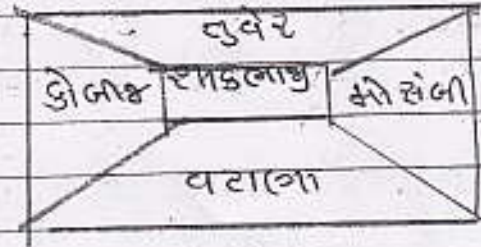 તુવેર
કોબીજ શાકભાજી મોસંબી
વટાણા